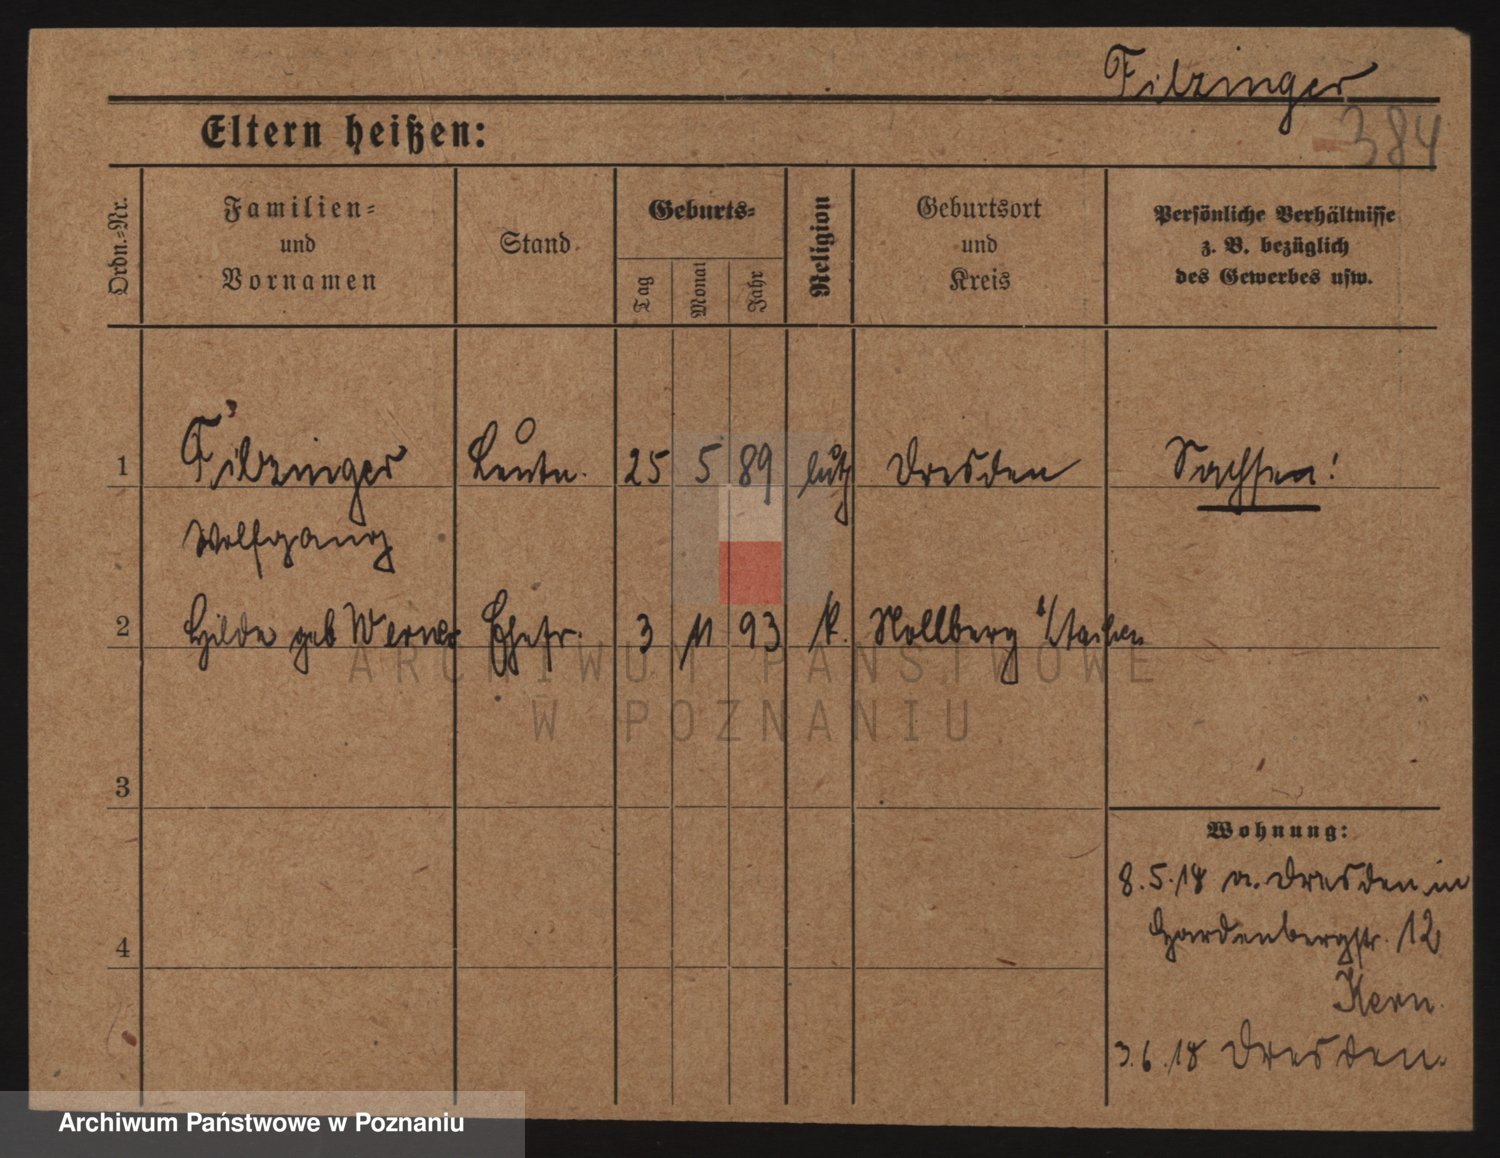 Filzinger
384
Eltern heißen:
Ordn.-Nr.
Familien-
und
Vornamen
Stand
Geburts-
Tag
Monat
Jahr
Religion
Geburtsort
und
Kreis
Persönliche Verhältnisse
z. B. bezüglich
des Gewerbes usw.
1 Filzinger Leutn. 25 5 89 luth Dresden Sachsen!
Wolfgang
2 Hilde geb Werner Ehefr. 3 11 93 k. Stollberg i/Sachsen
3
4
Wohnung:
8.5.18 a. Dresden in
Hardenbergstr. 12
Kern.
3.6.18 Dresden.
ARCHIWUM PAŃSTWOWE
W POZNANIU
Archiwum Państwowe w Poznaniu